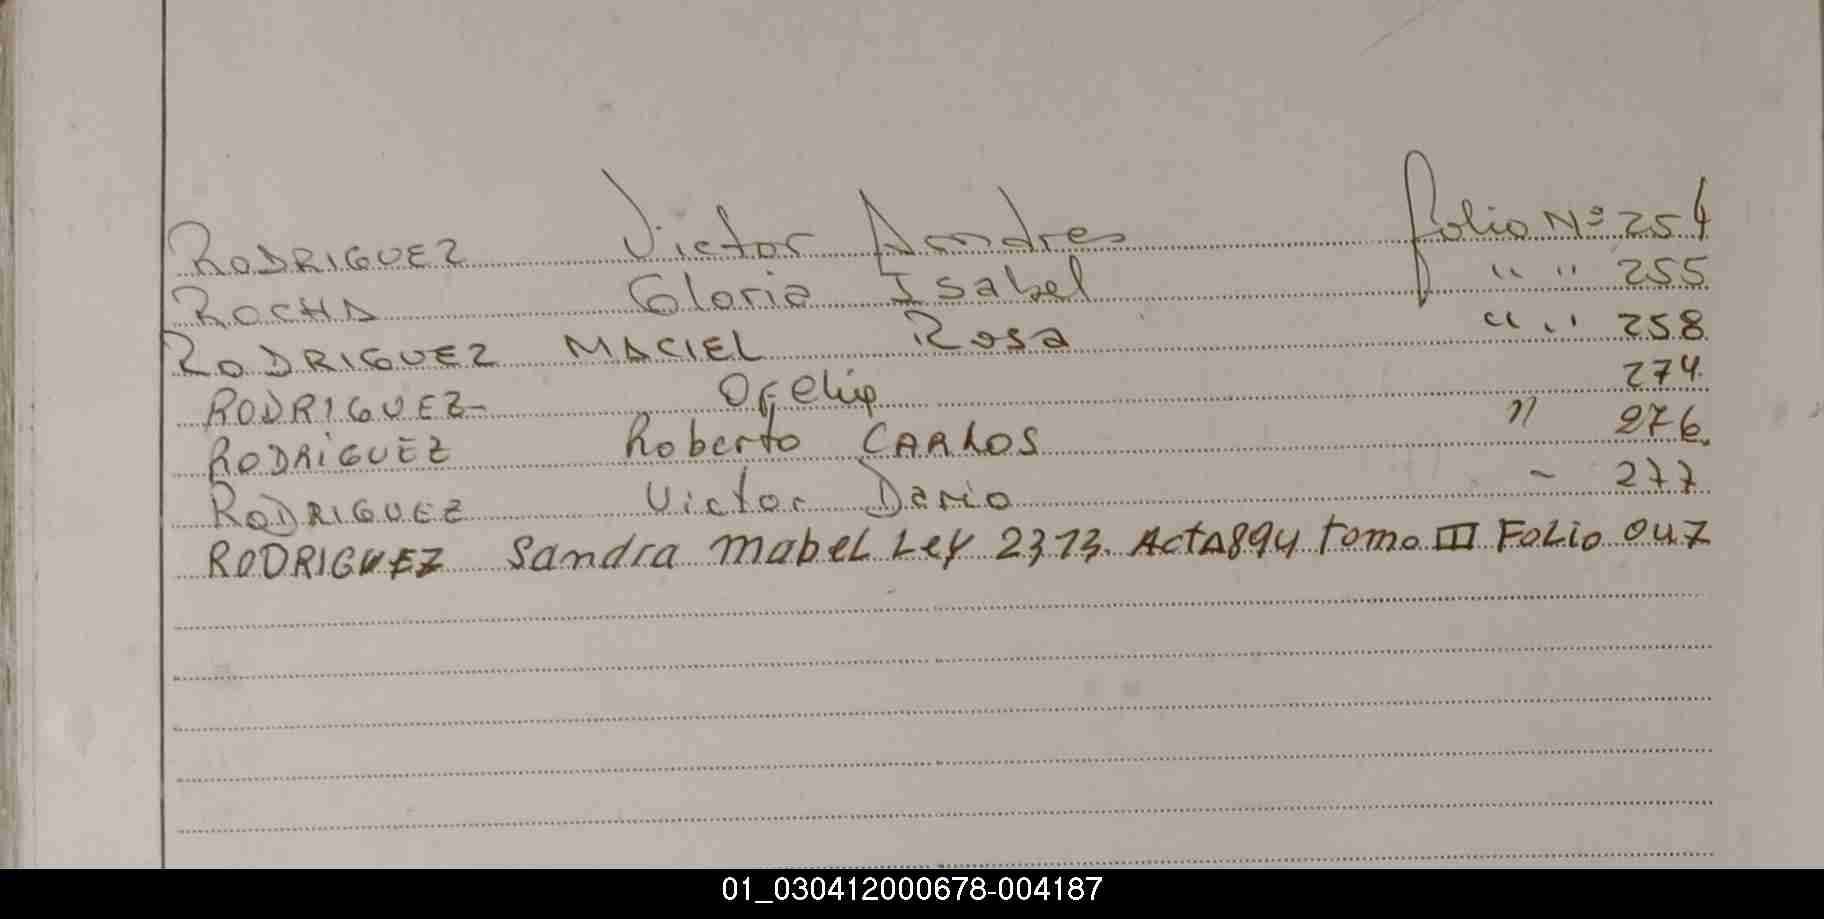 RODRIGUEZ Victor Andres folio Nº 254
ROCHA Gloria Isabel " " 255
RODRIGUEZ MACIEL Rosa " " 258
RODRIGUEZ Ofelia 274
RODRIGUEZ Roberto CARLOS " 276.
RODRIGUEZ Victor Dario - 277
RODRIGUEZ Sandra Mabel Ley 2373. Acta 894 tomo III Folio 047
01_030412000678-004187